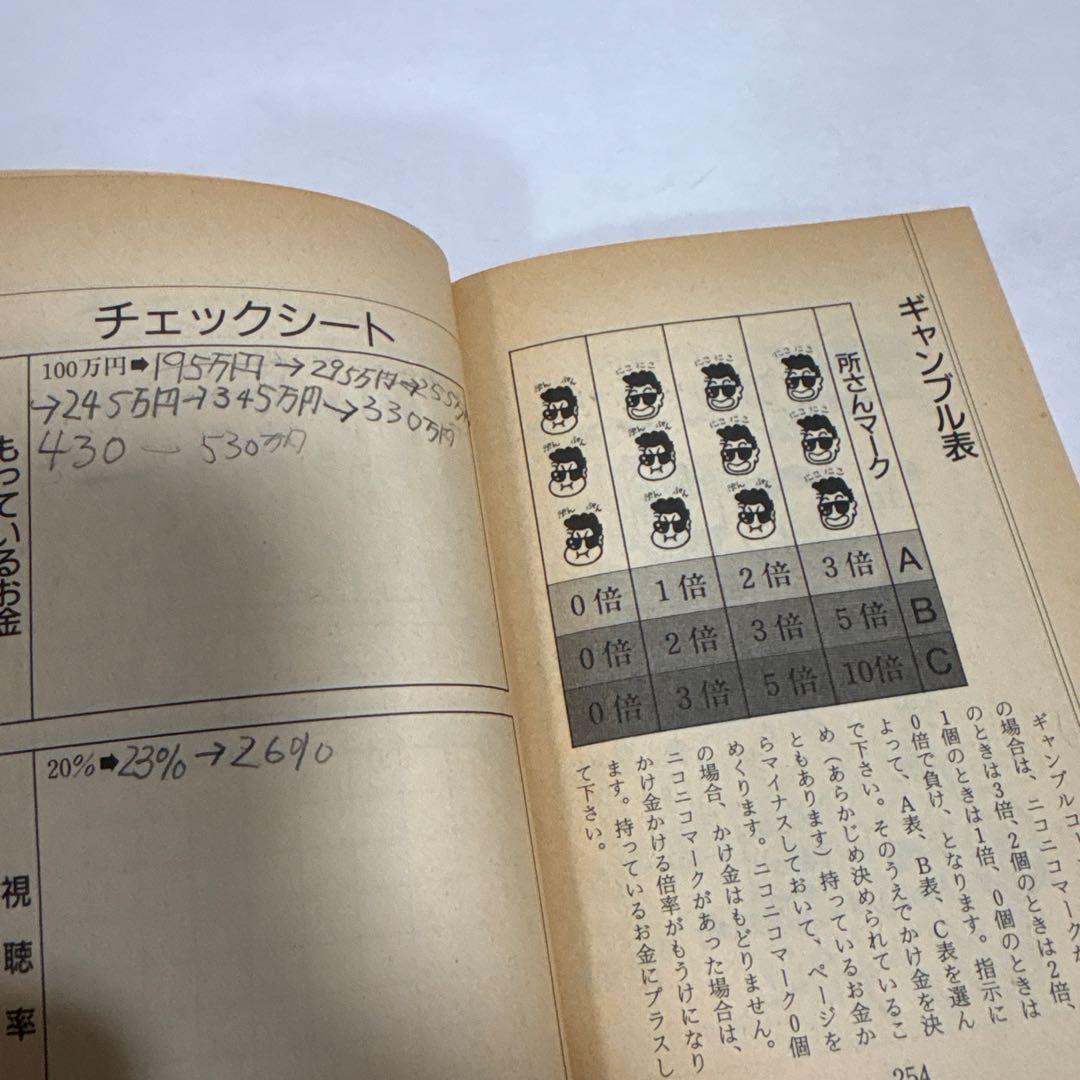 チェックシート
もっているお金
100万円➡195万円→295万円→255万円
→245万円→345万円→330万円
430 ー 530万円
視聴率
20%➡23%→26%
ギャンブル表
所さんマーク
にこにこ にこにこ ぷんぷん ぷんぷん
にこにこ にこにこ ぷんぷん ぷんぷん
にこにこ ぷんぷん ぷんぷん ぷんぷん
A 3倍 2倍 1倍 0倍
B 5倍 3倍 2倍 0倍
C 10倍 5倍 3倍 0倍
ギャンブルコ
の場合は、ニコニコマークが
のときは3倍、2個のときは2倍、
1個のときは1倍、0個のときは
0倍で負け、となります。指示に
よって、A表、B表、C表を選ん
で下さい。そのうえでかけ金を決
め（あらかじめ決められているこ
ともあります）持っているお金か
らマイナスしておいて、ページを
めくります。ニコニコマーク0個
の場合、かけ金はもどりません。
ニコニコマークがあった場合は、
かけ金かける倍率がもうけになり
ます。持っているお金にプラスし
て下さい。
254